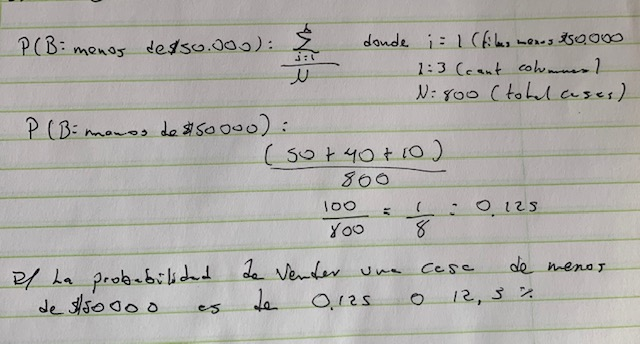 P(B: menos de $50.000): Σ i=1 / N donde i = 1 (filas menos $50.000
1:3 (cant columnas)
N: 800 (total casas)
P(B: menos de $50000):
(50 + 40 + 10)
800
100/800 = 1/8 = 0.125
R/ La probabilidad de Vender una casa de menos
de $50000 es de 0,125 o 12,5 %